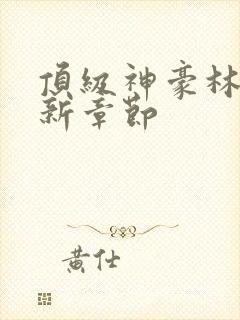 頂級神豪林
新章節
黃仕